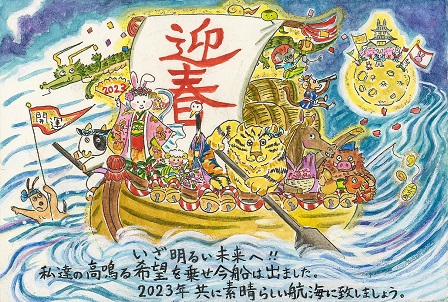 迎春
2023
開運
いざ明るい未来へ!!
私達の高鳴る希望を乗せ今船は出ました。
2023年 共に素晴らしい航海に致しましょう。